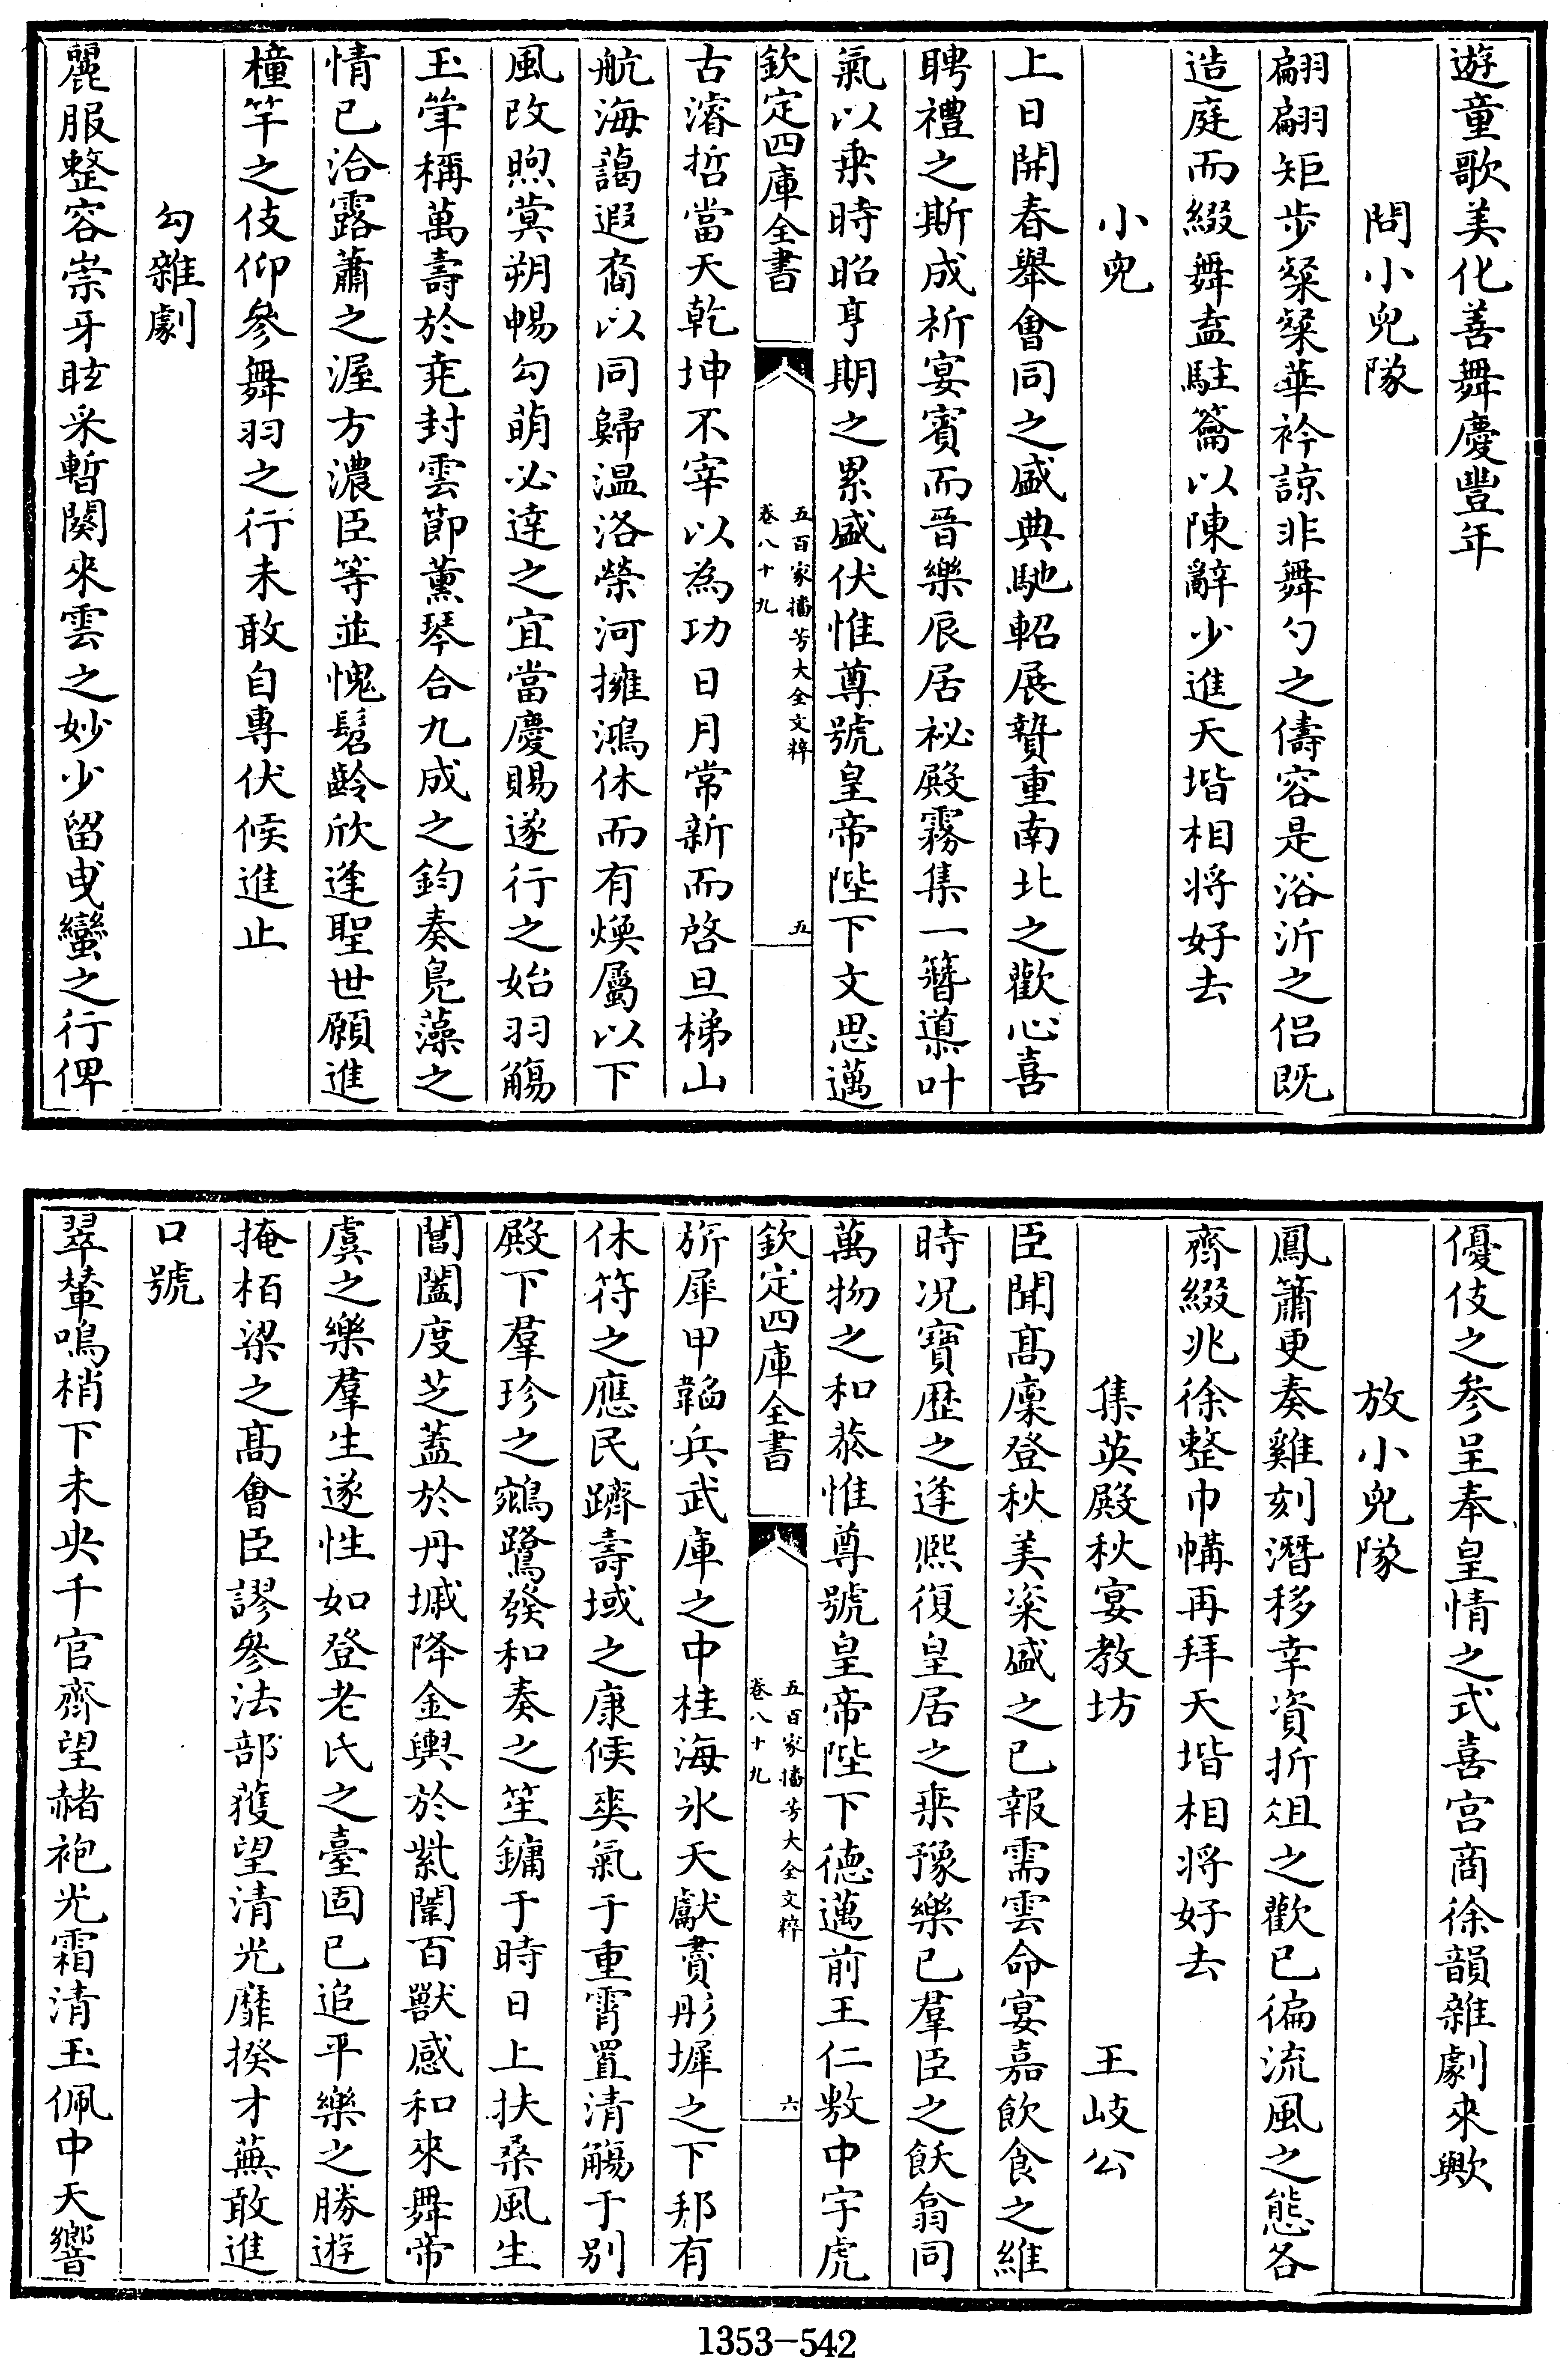 遊童歌美化善舞慶豐年
問小兒隊
翩翩矩步粲粲華衿諒非舞勺之儔容是浴沂之侶既
造庭而綴舞盍駐籥以陳辭少進天堦相将好去
小兒
上日開春舉會同之盛典馳軺展贄重南北之歡心喜
聘禮之斯成祈宴賓而晉樂辰居祕殿霧集一簪導叶
氣以乗時昭亨期之累盛伏惟尊號皇帝陛下文思邁
欽定四庫全書
五百家播芳大全文粹
卷八十九
五
古濬哲當天乾坤不宰以為功日月常新而啓旦梯山
航海藹遐裔以同歸温洛榮河擁鴻休而有煥屬以下
風改煦蓂朔暢勾萌必達之宜當慶賜遂行之始羽觴
玉斝稱萬壽於堯封雲節薫琴合九成之鈞奏鳧藻之
情已洽露蕭之渥方濃臣等並愧髫齡欣逢聖世願進
橦竿之伎仰參舞羽之行未敢自專伏候進止
勾雜劇
麗服整容崇牙眩采暫闋來雲之妙少留曵蠻之行俾
優伎之参呈奉皇情之式喜宫商徐韻雜劇來歟
放小兒隊
鳳簫更奏雞刻潛移幸資折俎之歡已徧流風之態各
齊綴兆徐整巾幬再拜天堦相将好去
集英殿秋宴教坊
王岐公
臣聞髙廩登秋美粢盛之已報需雲命宴嘉飲食之維
時况寶歴之逢熈復皇居之乗豫樂已羣臣之飫翕同
萬物之和恭惟尊號皇帝陛下德邁前王仁敷中宇虎
欽定四庫全書
五百家播芳大全文粹
卷八十九
六
旂犀甲韜兵武庫之中桂海氷天獻賮彤墀之下邦有
休符之應民躋壽域之康候爽氣于重霄置清觴于别
殿下羣珍之鵷鷺發和奏之笙鏞于時日上扶桑風生
閶闔度芝蓋於丹墄降金輿於紫闥百獸感和來舞帝
虞之樂羣生遂性如登老氏之臺固已追平樂之勝遊
掩栢梁之髙會臣謬參法部獲望清光靡揆才蕪敢進
口號
翠輦鳴梢下未央千官齊望赭袍光霜清玉佩中天響
1353-542